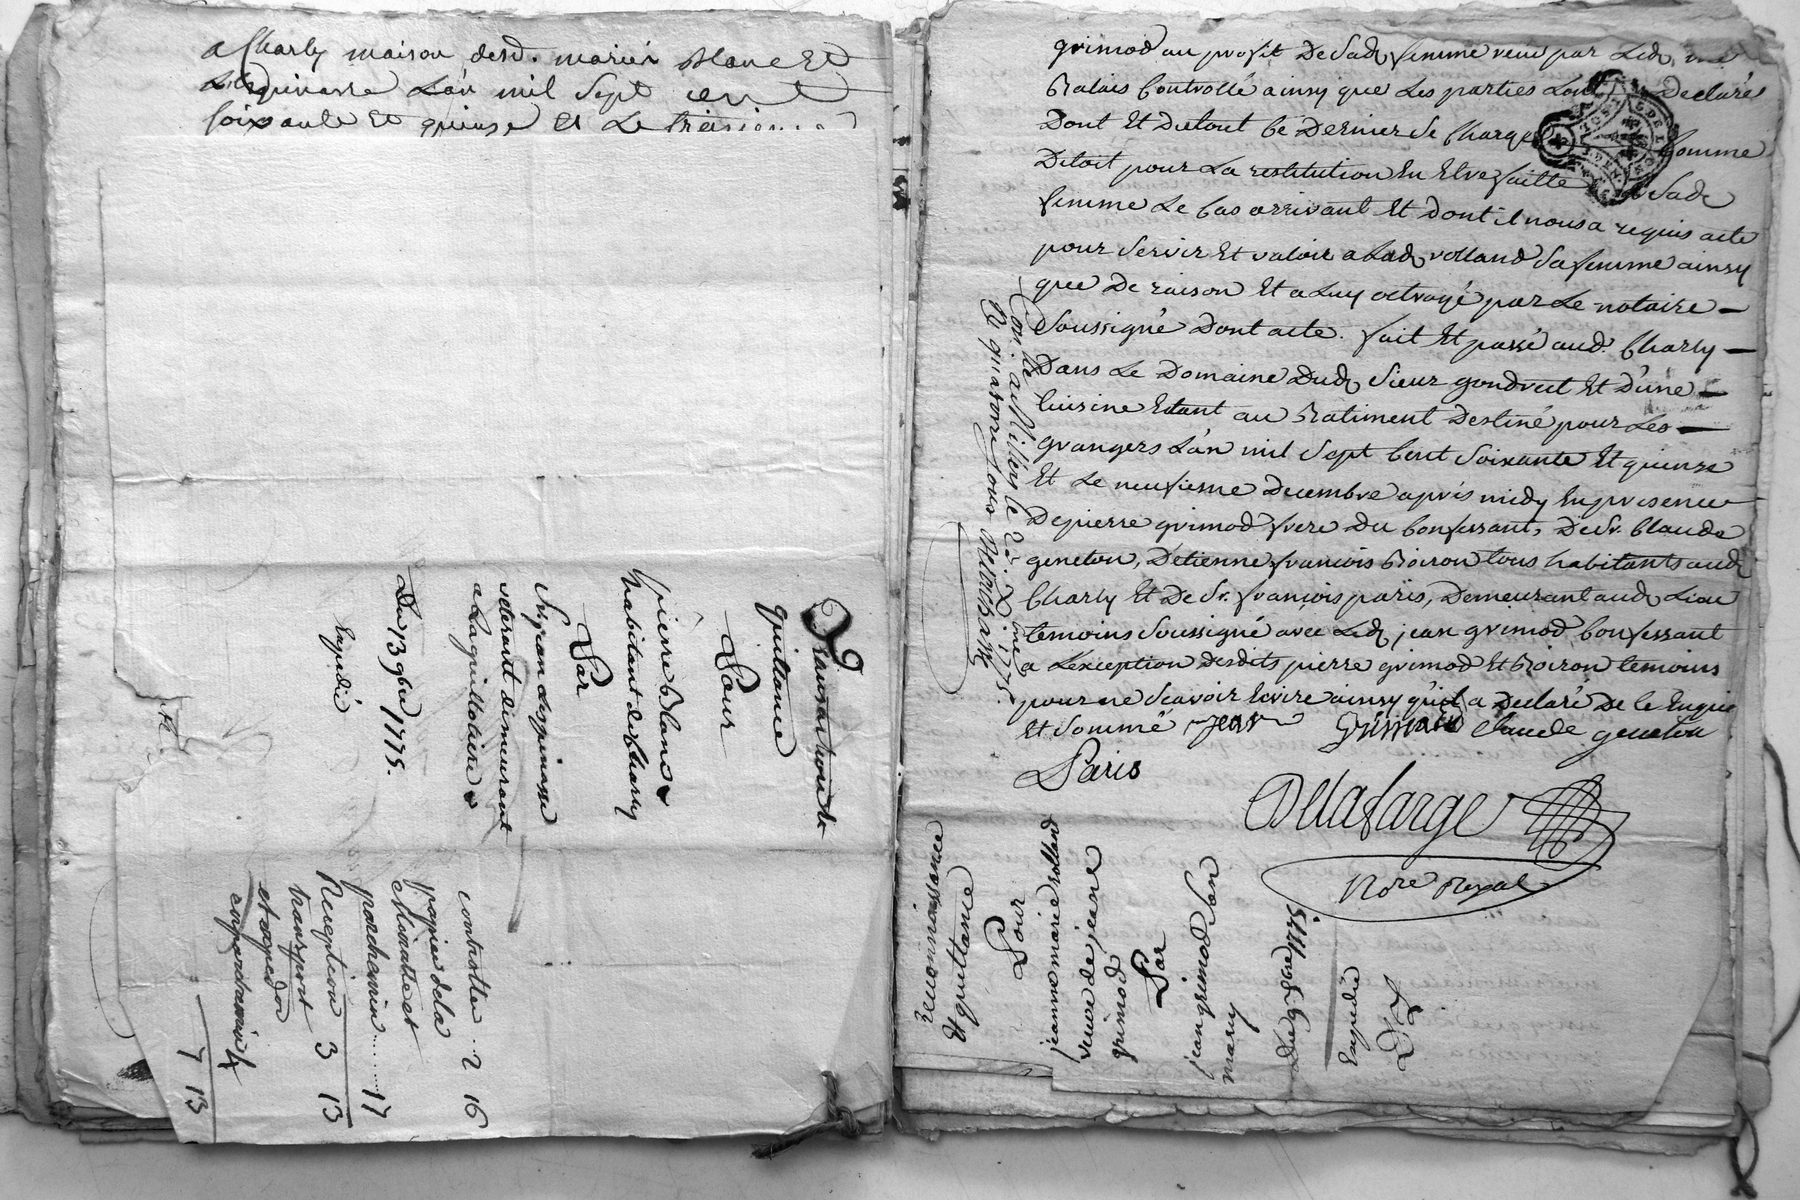 a Charly maison desd. mariés Blanc Et
Lespinasse L'an mil Sept cent
soixante Et quinze Et Le treizieme
quittance
Pour
pierre blanc
habitant de Charly
Par
Sr jean Lespinasse
veterant demeurant
a La guillotiere
Du 13 9bre 1775.
Expedié
controlle .. 2 16
papier de la
Minutte et
parchemin ...... 17
Reception 3 13
transport
et expedon
en parchemin 4
7 13
grimod au profit De Sade femme reçu par Led. me
Balais Controllé ainsy que Les parties L'ont Declaré
Dont Et Du tout Ce Dernier Se Charge Comme
Dessus pour La restitution En Etre faitte a Sade
femme Le Cas arrivant Et dont il nous a requis acte
pour Servir Et valoir a Lad. rolland Sa femme ainsy
que De raison Et a Luy octroyé par Le notaire —
Soussigné Dont acte. fait Et passé aud. Charly —
Dans Le Domaine Dud. Sieur gondret Et D'une —
Cuisine Etant au Batiment Destiné pour Les —
grangers L'an mil Sept Cent Soixante Et quinze
Et Le neufieme Decembre après midy En presence
De pierre grimod frere Du Confessant, De Sr. Claude
geneton, D'etienne françois Boiron tous habitants aud.
Charly Et De Sr. françois paris, Demeurant aud. Lion
temoins Soussigné avec Led. jean grimod Confessant
a L'exception Desdits pierre grimod Et Boiron temoins
pour ne Scavoir Ecrire ainsy qu'il a Declaré De Ce Enquis
Et Sommé jean Grimaud Claude geneton
Paris
Delafarge
Nore Royal
Con.lé a Millery le 22. Xbre 1775.
R quatorze sous Delafarge
Reconnoissance
Et quittance
Pour
jeanne marie rolland
veuve de jeane
grimod
Par
jean grimod Son
mary
Du 9 Xbre 1775
Expedié